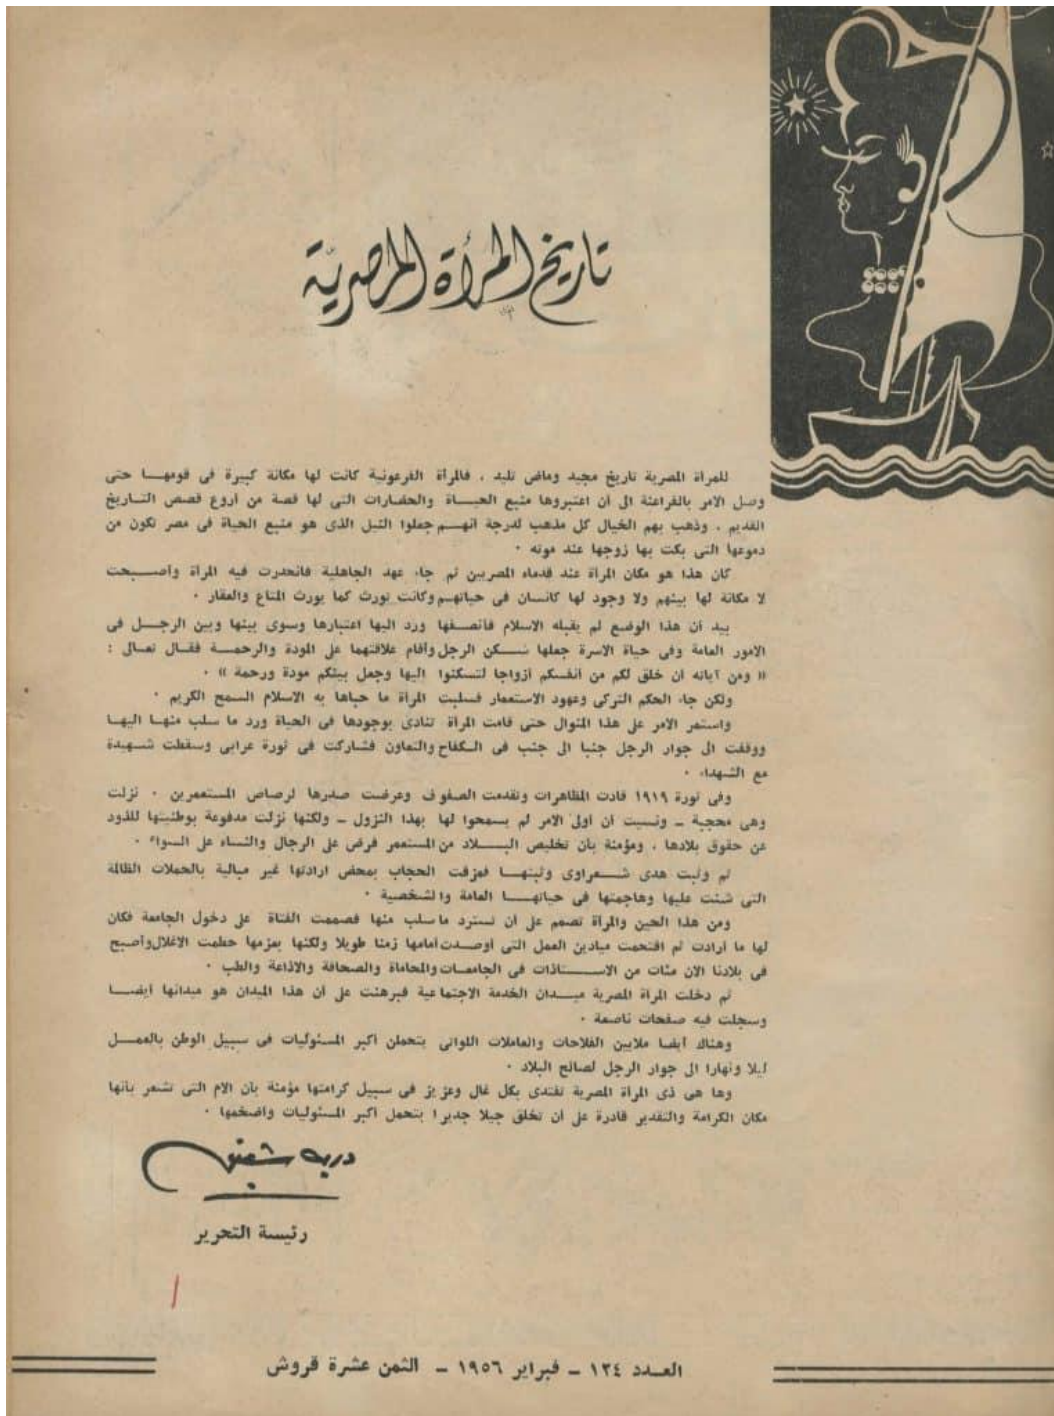 تاريخ المرأة المصرية
للمرأة المصرية تاريخ مجيد وماض تليد ، فالمرأة الفرعونية كانت لها مكانة كبيرة فى قومهــا حتى
وصل الامر بالفراعنة الى أن اعتبروها منبع الحيــاة والحضارات التى لها قصة من أروع قصص التــاريخ
القديم ، وذهب بهم الخيال كل مذهب لدرجة أنهـم جعلوا النيل الذى هو منبع الحياة فى مصر تكون من
دموعها التى بكت بها زوجها عند موته .
كان هذا هو مكان المرأة عند قدماء المصريين ثم جاء عهد الجاهلية فانحدرت فيه المرأة وأصـبحت
لا مكانة لها بينهم ولا وجود لها كانسان فى حياتهم وكانت تورث كما يورث المتاع والعقار .
بيد أن هذا الوضع لم يقبله الاسلام فأنصفها ورد اليها اعتبارها وسوى بينها وبين الرجــل فى
الامور العامة وفى حياة الاسرة جعلها تسـكن الرجل وأقام علاقتهما على المودة والرحمــة فقــال تعــالى :
« ومن آياته أن خلق لكم من أنفسكم أزواجا لتسكنوا اليها وجعل بينكم مودة ورحمة » .
ولكن جاء الحكم التركى وعهود الاستعمار فسلبت المرأة ما حباها به الاسلام السمح الكريم .
واستمر الامر على هذا المنوال حتى قامت المرأة تنادى بوجودها فى الحياة ورد ما سلب منهـا اليهـا
ووقفت الى جوار الرجل جنبا الى جنب فى الـكفاح والتعاون فشاركت فى ثورة عرابى وسقطت شـهيدة
مع الشهداء .
وفى ثورة ١٩١٩ قادت المظاهرات وتقدمت الصفوف وعرضت صدرها لرصاص المستعمرين . نزلت
وهى محجبة ــ ونسيت أن أولى الامر لم يسمحوا لها بهذا النزول ــ ولكنها نزلت مدفوعة بوطنيتها للذود
عن حقوق بلادها ، ومؤمنة بأن تخليص البــلاد من المستعمر فرض على الرجال والنساء على السواء .
ثم وثبت هدى شــعراوى وثبتهــا فمزقت الحجاب بمحض ارادتها غير مبالية بالحملات الظالمة
التى شنت عليها وهاجمتها فى حياتهــا العامة والشخصية .
ومن هذا الحين والمرأة تصمم على أن تسترد ما سلب منها فصممت الفتاة على دخول الجامعة فكان
لها ما أرادت ثم اقتحمت ميادين العمل التى أوصـدت أمامها زمنا طويلا ولكنها بعزمها حطمت الاغلال وأصبح
فى بلادنا الآن مئات من الاســتاذات فى الجامعـات والمحاماة والصحافة والاذاعة والطب .
ثم دخلت المرأة المصرية ميــدان الخدمة الاجتماعية فبرهنت على أن هذا الميدان هو ميدانها أيضــا
وسجلت فيه صفحات ناصعة .
وهناك أيضا ملايين الفلاحات والعاملات اللواتى يتحملن أكبر المسئوليات فى سبيل الوطن بالعمــل
ليلا ونهارا الى جوار الرجل لصالح البلاد .
وها هى ذى المرأة المصرية تفتدى بكل غال وعزيز فى سبيل كرامتها مؤمنة بأن الام التى تشعر بأنها
مكان الكرامة والتقدير قادرة على أن تخلق جيلا جديرا بتحمل أكبر المسئوليات وأضخمها .
درية شفيق
رئيسة التحرير
العــدد ١٢٤ ــ فبراير ١٩٥٦ ــ الثمن عشرة قروش